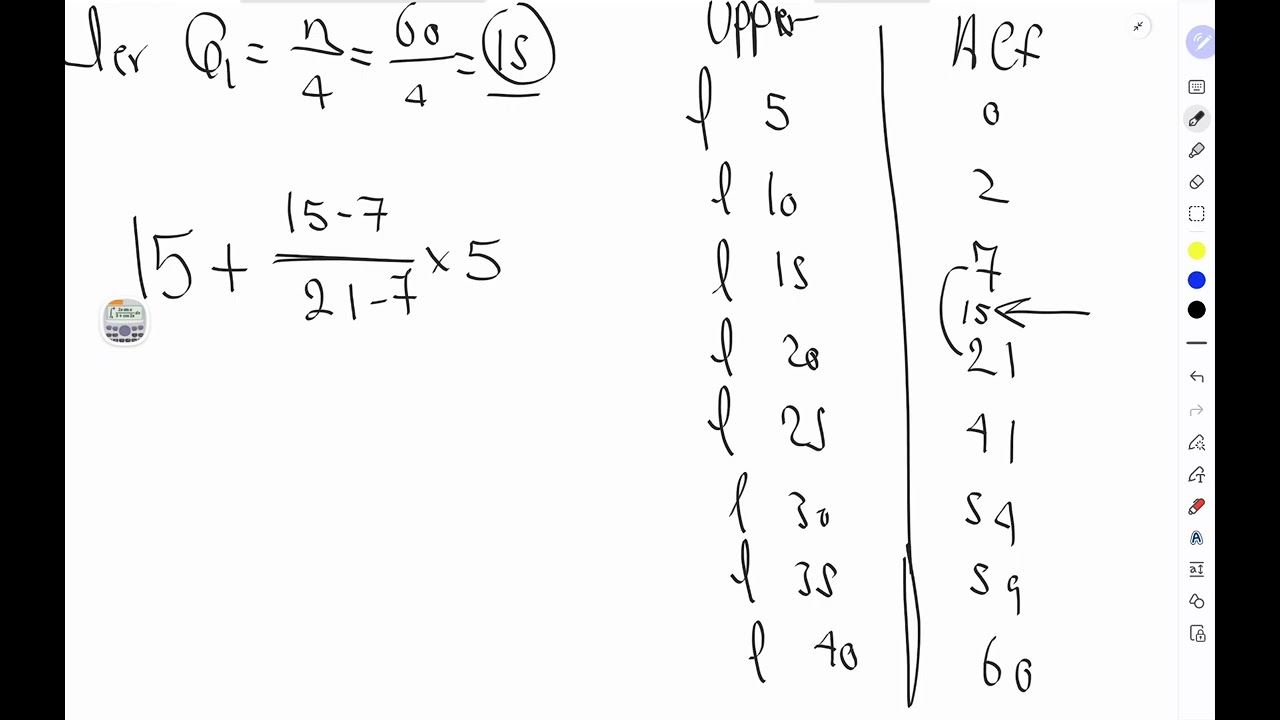 ler Q₁ = n/4 = 60/4 = 15
15 + (15-7)/(21-7) × 5
Upper ACf
l 5 0
l 10 2
l 15 7
15
l 20 21
l 25 41
l 30 54
l 35 59
l 40 60